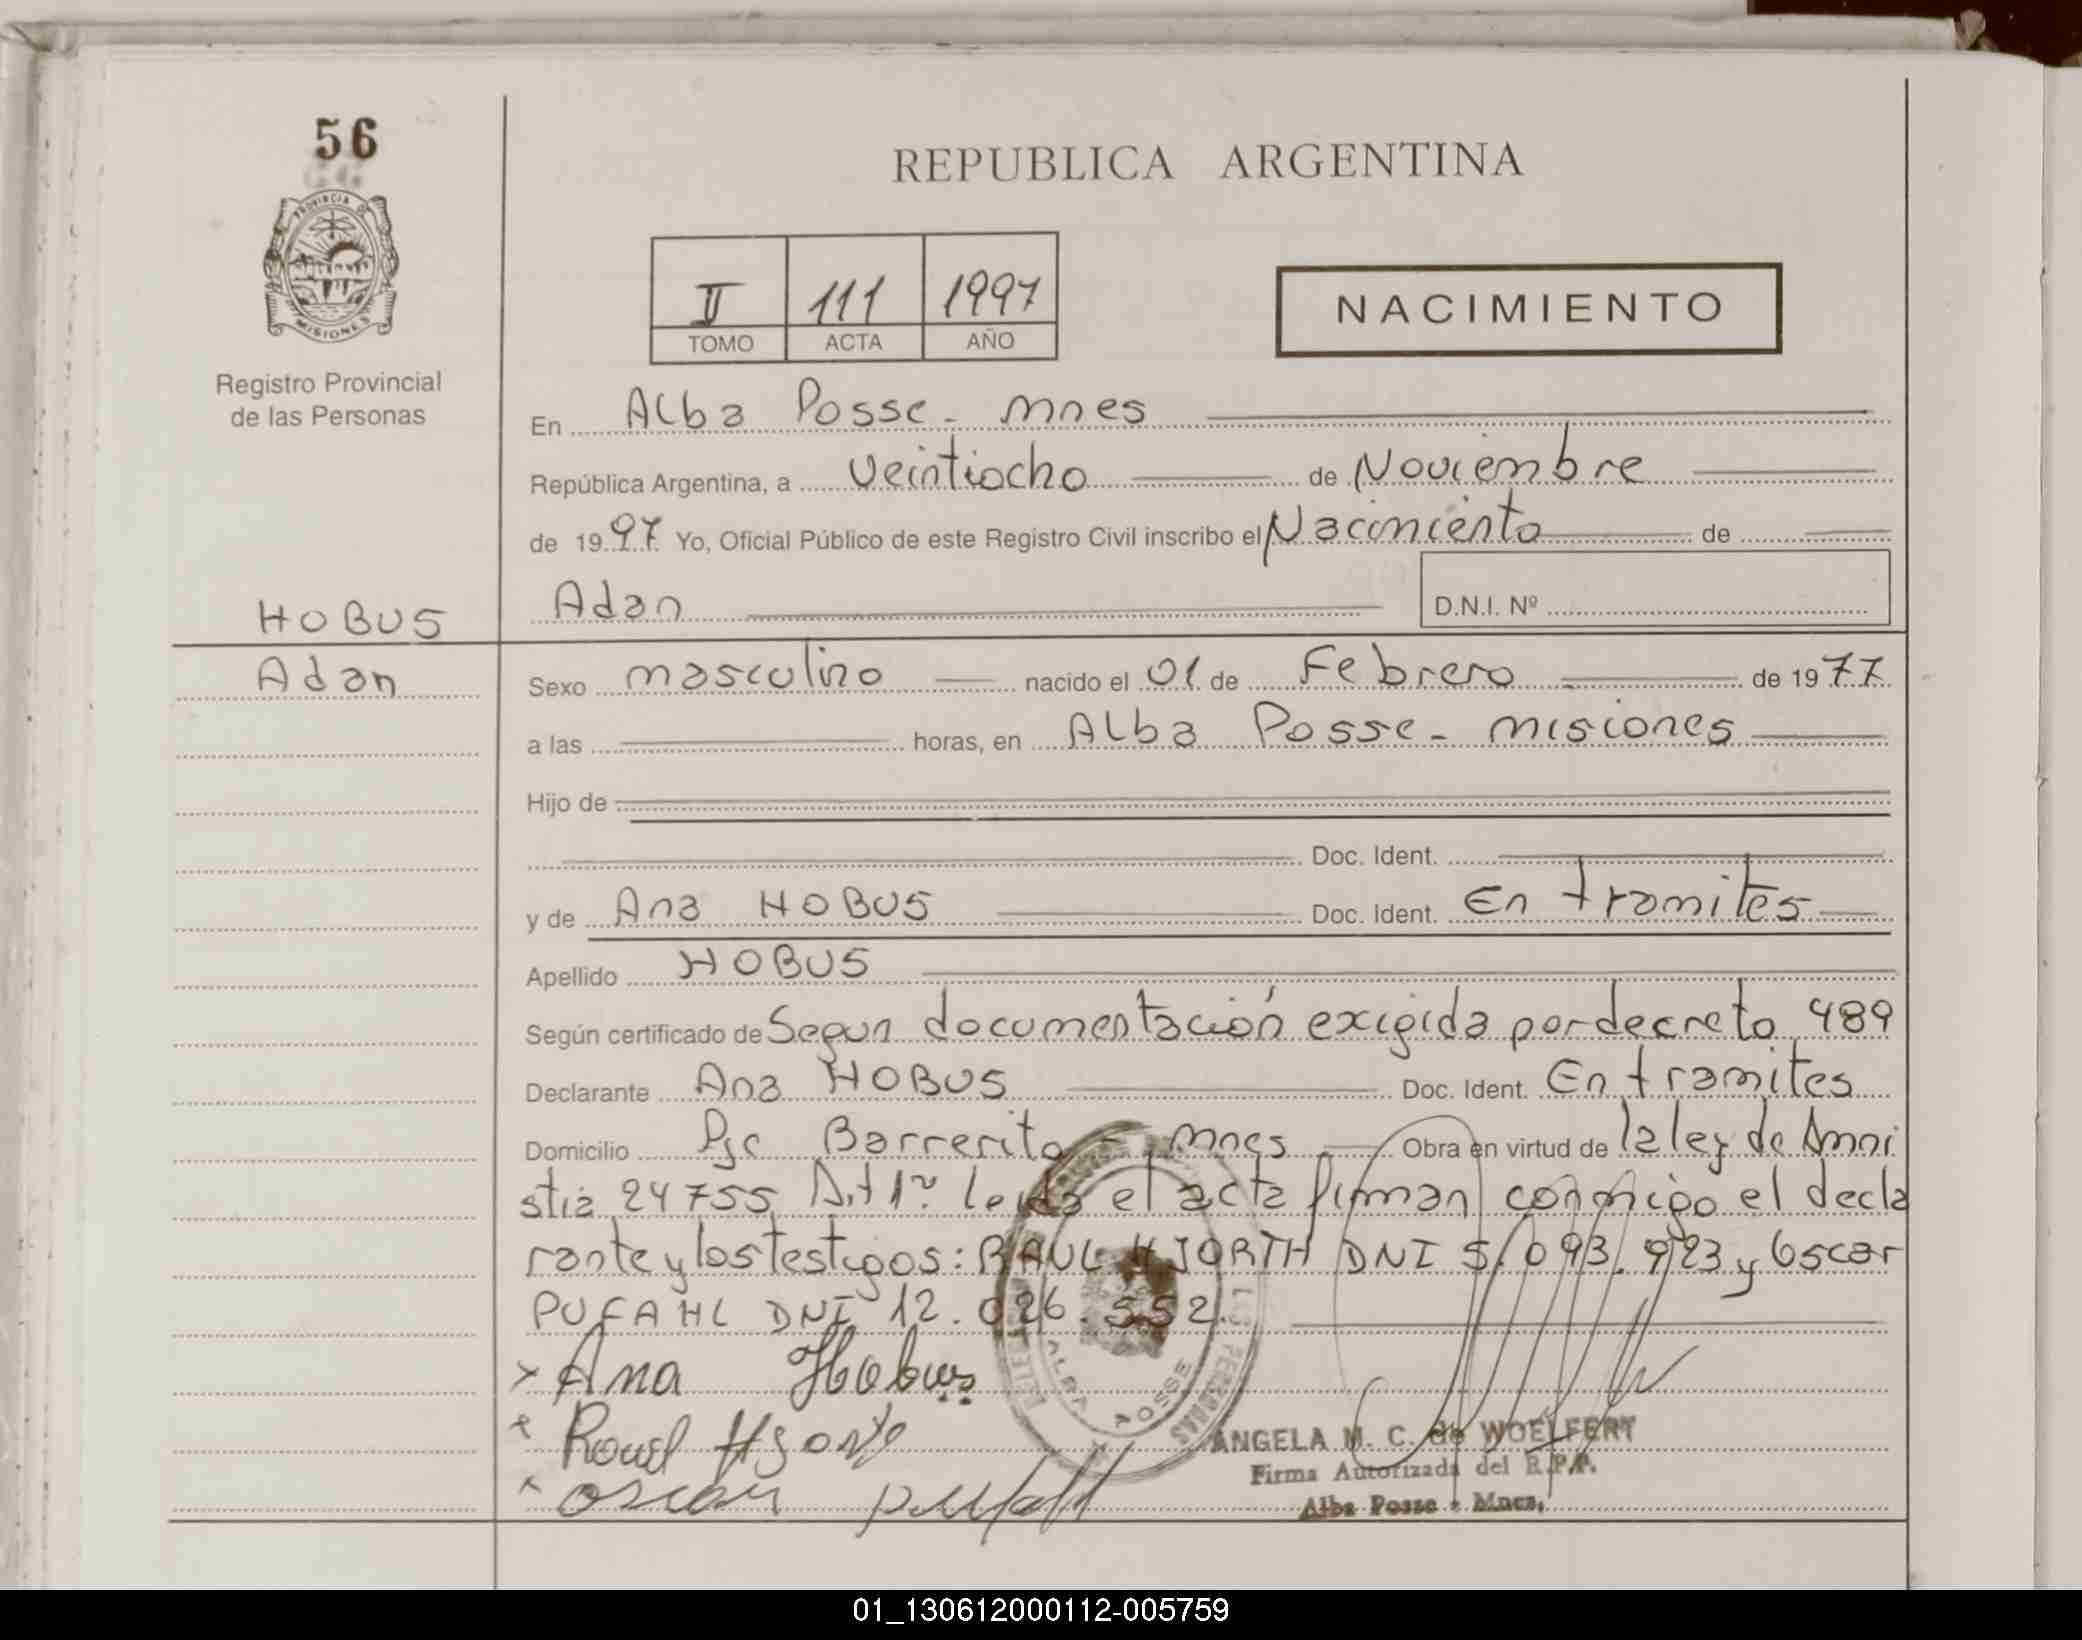 56
PROVINCIA DE
MISIONES
Registro Provincial
de las Personas
HOBUS
Adan
REPUBLICA ARGENTINA
II 111 1997
TOMO ACTA AÑO
NACIMIENTO
En Alba Posse - mnes
República Argentina, a veintiocho de Noviembre
de 1997 Yo, Oficial Público de este Registro Civil inscribo el Nacimiento de
Adan D.N.I. Nº
Sexo masculino nacido el 01 de Febrero de 1977
a las horas, en Alba Posse - misiones
Hijo de
Doc. Ident.
y de Ana HOBUS Doc. Ident. En tramites
Apellido HOBUS
Según certificado de Segun documentación exigida por decreto 489
Declarante Ana HOBUS Doc. Ident. En tramites
Domicilio Pje Barrerito - mnes Obra en virtud de la ley de Amni
stia 24755 Art 1º leida el acta firman conmigo el decla
rante y los testigos: RAUL HJORTH DNI 5.093.923 y Oscar
PUFAHL DNI 12.026.552.
x Ana Hobus
x
x oscar pufahl
ALBA POSSE
ANGELA M. C. de WOELFERT
Firma Autorizada del R.P.P.
Alba Posse - Mnes.
01_130612000112-005759